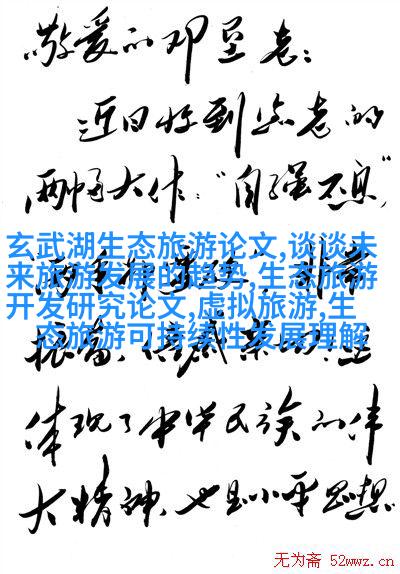 敬爱的邓垦老：
近日收到您老的
两幅大作：“自强不息”
玄武湖生态旅游论文,谈谈未
来旅游发展的趋势,生态旅游
开发研究论文,虚拟旅游,生
态旅游可持续性发展理解
体现了中华民族的伟
大精神，也是小平思想
无为斋 52wwz.cn